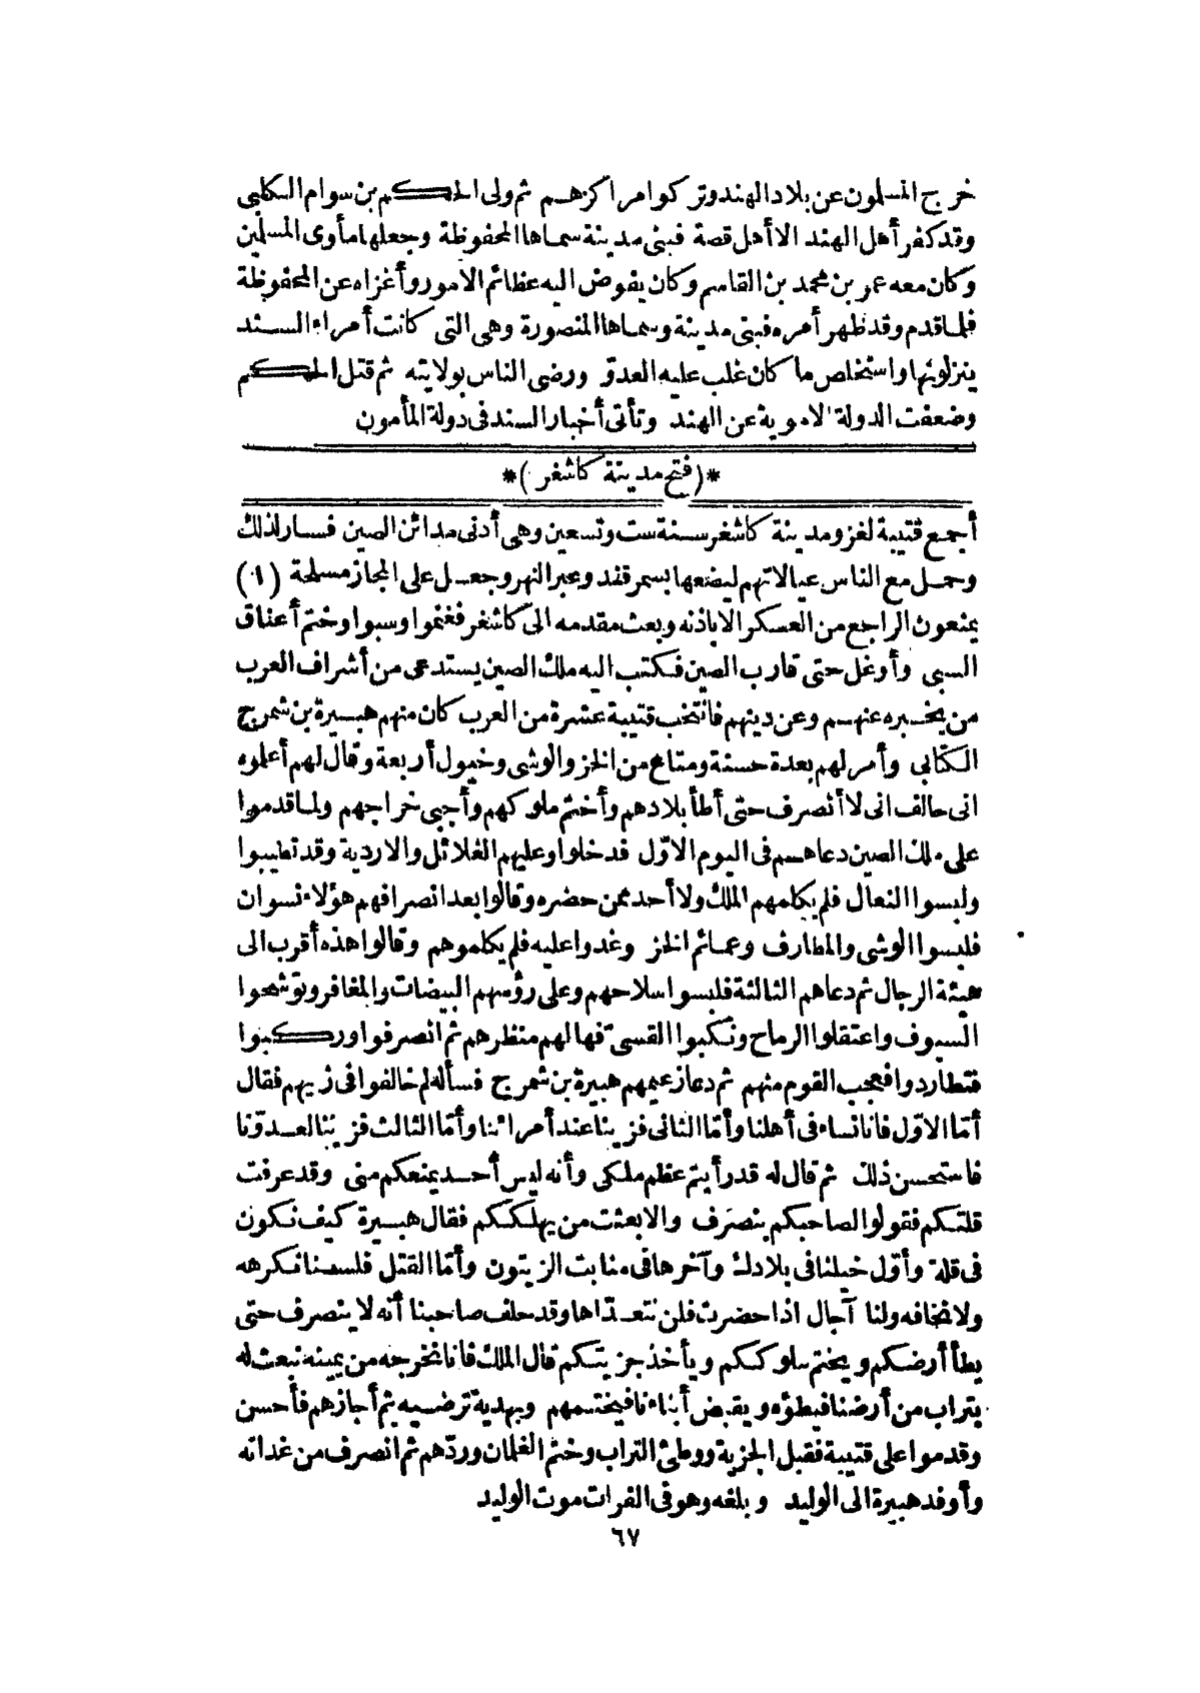 خرج المسلمون عن بلاد الهند وتركوا مراكزهم ثم ولى الحكم بن سوام الكلبي
وقد كفر أهل الهند الا أهل قصة فبنى مدينة سماها المحفوظة وجعلها مأوى المسلمين
وكان معه عمر بن محمد بن القاسم وكان يفوض اليه عظائم الامور وأغزاه عن المحفوظة
فلما قدم وقد ظهر أمره فبنى مدينة وسماها المنصورة وهى التى كانت أمراء السند
ينزلونها واستخلص ما كان غلب عليه العدوّ ورضى الناس بولايته ثم قتل الحكم
وضعفت الدولة الاموية عن الهند وتأتى أخبار السند فى دولة المأمون
*(فتح مدينة كاشغر)*
أجمع قتيبة لغزو مدينة كاشغر سنة ست وتسعين وهى أدنى مدائن الصين فسار لذلك
وحمل مع الناس عيالاتهم ليضعها بسمرقند وعبر النهر وجعل على المجاز مسلحة (١)
يمنعون الراجع من العسكر الا باذنه وبعث مقدمه الى كاشغر فغنموا وسبوا وختم أعناق
السبى وأوغل حتى قارب الصين فكتب اليه ملك الصين يستدعى من أشراف العرب
من يخبره عنهم وعن دينهم فانتخب قتيبة عشرة من العرب كان منهم هبيرة بن شمرج
الكتابى وأمر لهم بعدة حسنة ومتاع من الخز والوشى وخيول أربعة وقال لهم أعلموه
انى حالف انى لا أنصرف حتى أطأ بلادهم وأختم ملوكهم وأجبى خراجهم ولما قدموا
على ملك الصين دعاهم فى اليوم الاوّل فدخلوا وعليهم الغلائل والاردية وقد تطيبوا
ولبسوا النعال فلم يكلمهم الملك ولا أحد ممن حضره وقالوا بعد انصرافهم هؤلاء نسوان
فلبسوا الوشى والمطارف وعمائم الخز وغدوا عليه فلم يكلموهم وقالوا هذه أقرب الى
هيئة الرجال ثم دعاهم الثالثة فلبسوا سلاحهم وعلى رؤسهم البيضات والمغافر وتوشحوا
السيوف واعتقلوا الرماح ونكبوا القسىّ فهالهم منظرهم ثم انصرفوا وركبوا
فتطاردوا فعجب القوم منهم ثم دعا زعيمهم هبيرة بن شمرج فسأله لم خالفوا فى زيهم فقال
أمّا الاوّل فانا نساء فى أهلنا وأمّا الثانى فزيننا عند أمرائنا وأمّا الثالث فزيننا لعدوّنا
فاستحسن ذلك ثم قال له قد رأيتم عظم ملكى وأنه ليس أحد يمنعكم منى وقد عرفت
قلتكم فقولوا لصاحبكم ينصرف والا بعثت من يهلككم فقال هبيرة كيف نكون
فى قلة وأوّل خيلنا فى بلادك وآخرها فى منابت الزيتون وأمّا القتل فلسنا نكرهه
ولا نخافه ولنا آجال اذا حضرت فلن نتعدّاها وقد حلف صاحبنا أنه لا ينصرف حتى
يطأ أرضكم ويختم ملوككم ويأخذ جزيتكم قال الملك فانا نخرجه من يمينه نبعث له
بتراب من أرضنا فيطؤه ويقبض أبناءنا فيختمهم وبهدية ترضيه ثم أجازهم فأحسن
وقدموا على قتيبة فقبل الجزية ووطئ التراب وختم الغلمان وردّهم ثم انصرف من غداته
وأوفد هبيرة الى الوليد وبلغه وهو فى الفرات موت الوليد
٦٧